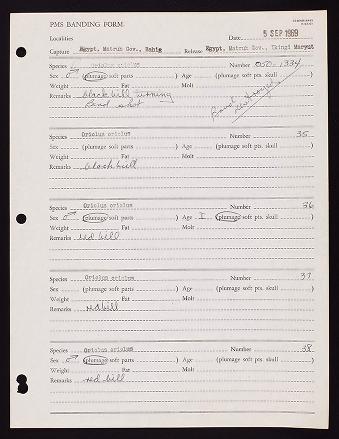 PMS BANDING FORM
Localities Date 5 SEP 1969
Capture Egypt, Matruh Gov., Bahig Release Egypt, Matruh Gov., Ikingi Maryut
Species Oriolus oriolus Number 050-1334
Sex ♂ (plumage soft parts ) Age (plumage soft pts. skull )
Weight Fat Molt
Remarks black bill turning
Red
Species Oriolus oriolus Number 35
Sex (plumage soft parts ) Age (plumage soft pts. skull )
Weight Fat Molt
Remarks black bill
Species Oriolus oriolus Number 36
Sex ♂ (plumage soft parts ) Age I (plumage soft pts. skull )
Weight Fat Molt
Remarks red bill
Species Oriolus oriolus Number 37
Sex (plumage soft parts ) Age (plumage soft pts. skull )
Weight Fat Molt
Remarks red bill
Species Oriolus oriolus Number 38
Sex ♂ (plumage soft parts ) Age (plumage soft pts. skull )
Weight Fat Molt
Remarks red bill